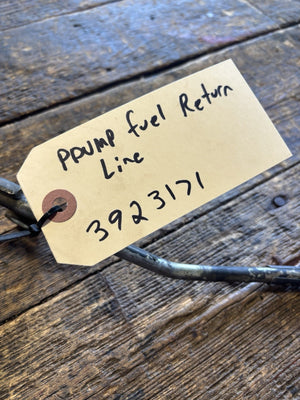 PPUMP fuel Return
Line
3923171